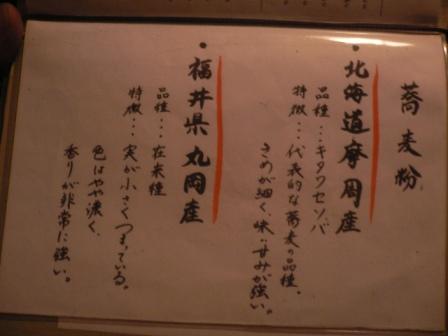 蕎麦粉
・北海道摩周産
品種…キタワセソバ
特徴…代表的な蕎麦の品種。
きめが細く、味・甘みが強い。
・福井県丸岡産
品種…在来種
特徴…実が小さくつまっている。
色はやや濃く、
香りが非常に強い。